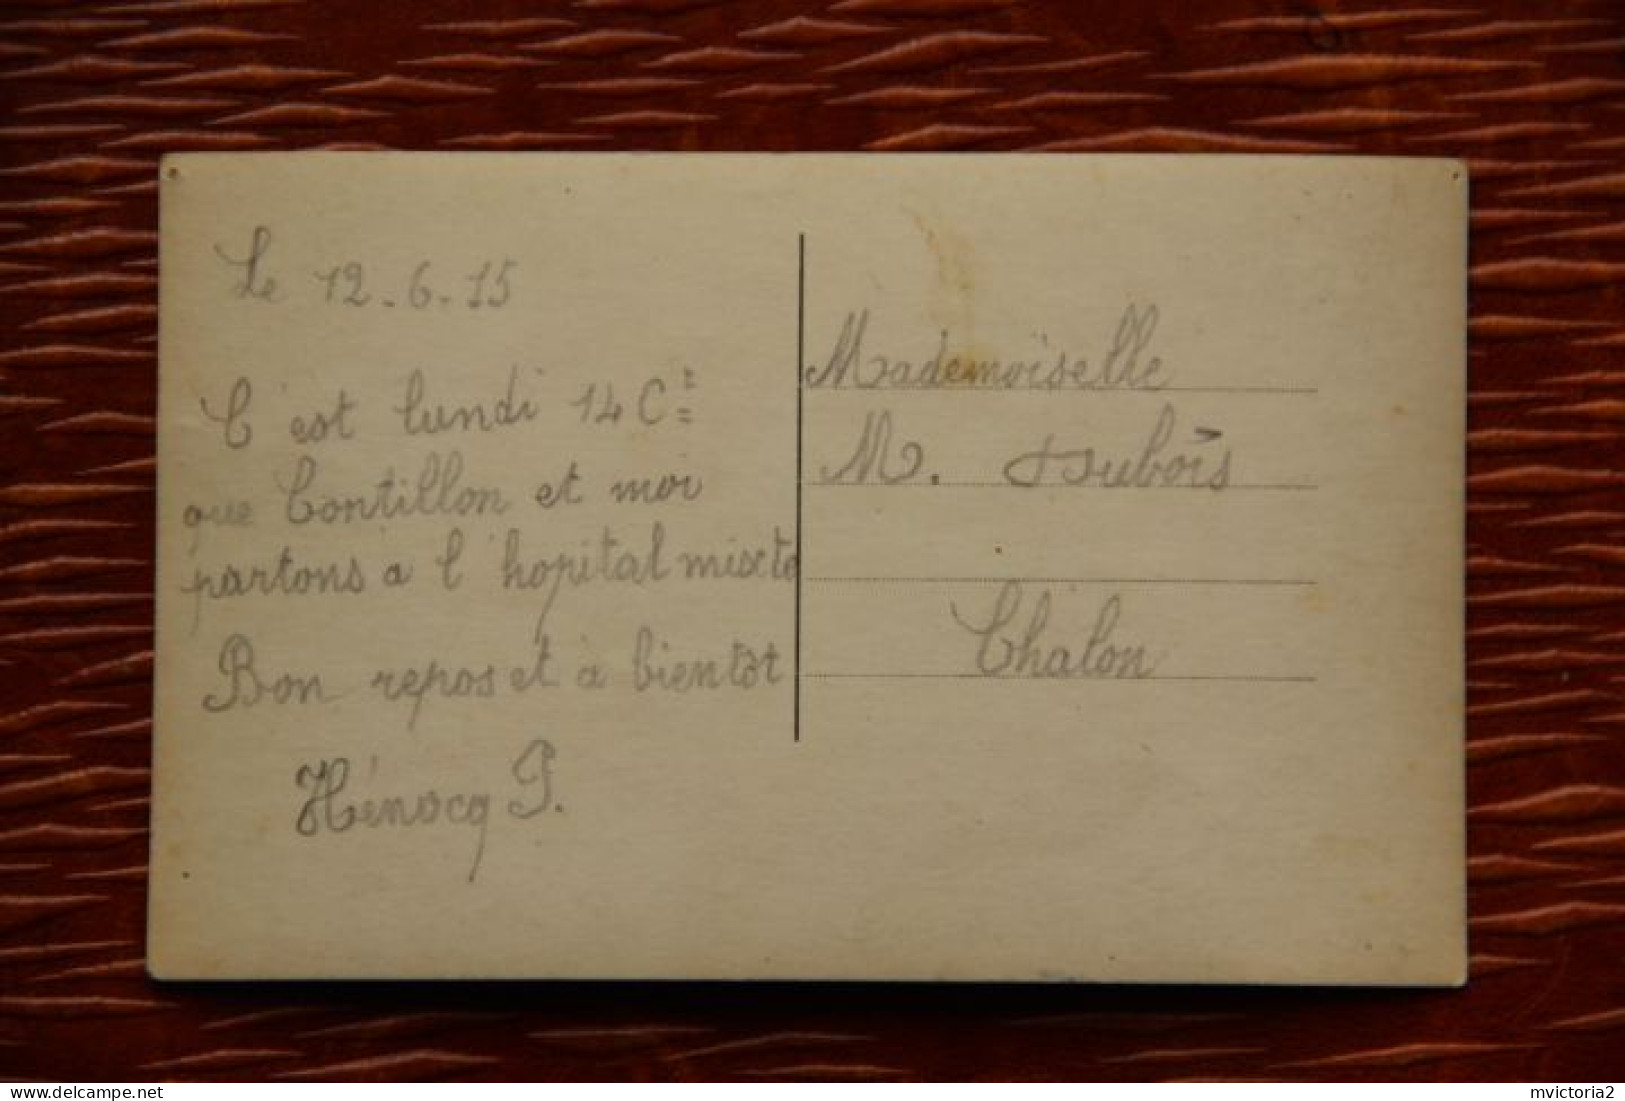 Le 12.6.15
C'est lundi 14 Ct
que Contillon et moi
partons à l'hopital mixte
Bon repos et à bientôt
Hénocq P.
Mademoïselle
M. Dubois
Chàlon
mvictoria2